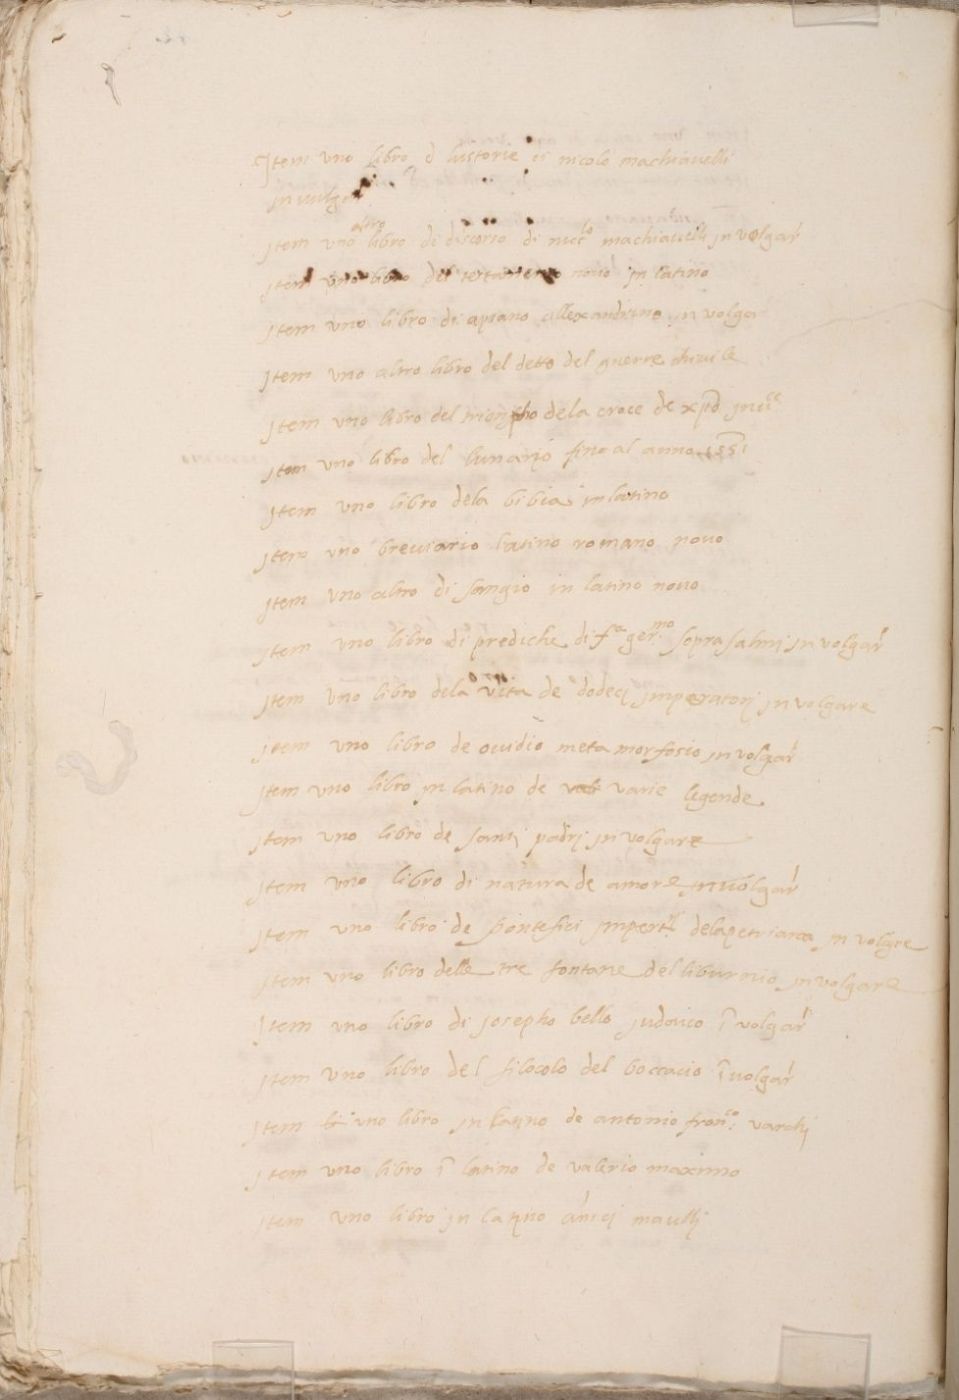 Item uno libro d historie di nicolo machiavelli
in vulgar
Item uno altro libro di discorso di nicclo machiavelli in volgar
Item uno libro del testamento novo in latino
Item uno libro di apiano allexandrino in volga
Item uno altro libro del detto del guerre civile
Item uno libro del triompho de la croce de xpo
Item uno libro del lunario fino al anno 1551
Item uno libro dela bibia in latino
Item uno breviario latino romano novo
Item uno altro di in latino novo
Item uno libro di prediche di fa germo sopra salmi in volgar
Item uno libro dela vita de dodeci imperatorj in volgare
Item uno libro de ovidio metamorfosio in volgar
Item uno libro in latino de varie legende
Item uno libro de santi padrj in volgare
Item uno libro di natura de amore in volgar
Item uno libro de pontefici in volgre
Item uno libro delle tre fontane del liburnio in volgare
Item uno libro di josepho bello judaico i volgar
Item uno libro del filocolo del boccacio i volgar
Item uno libro in latino de antonio franco varchj
Item uno libro i latino de valerio maximo
Item uno libro in latino